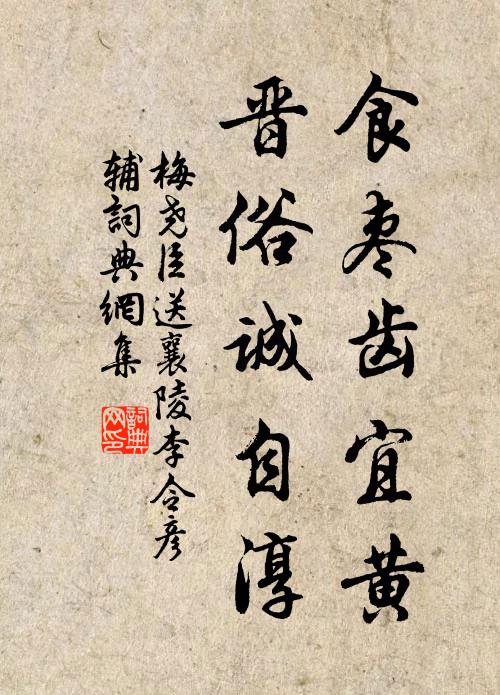 食枣齿宜黄
晋俗诚自淳
梅尧臣送襄陵李令彦
辅詞典網集
詞典
网印